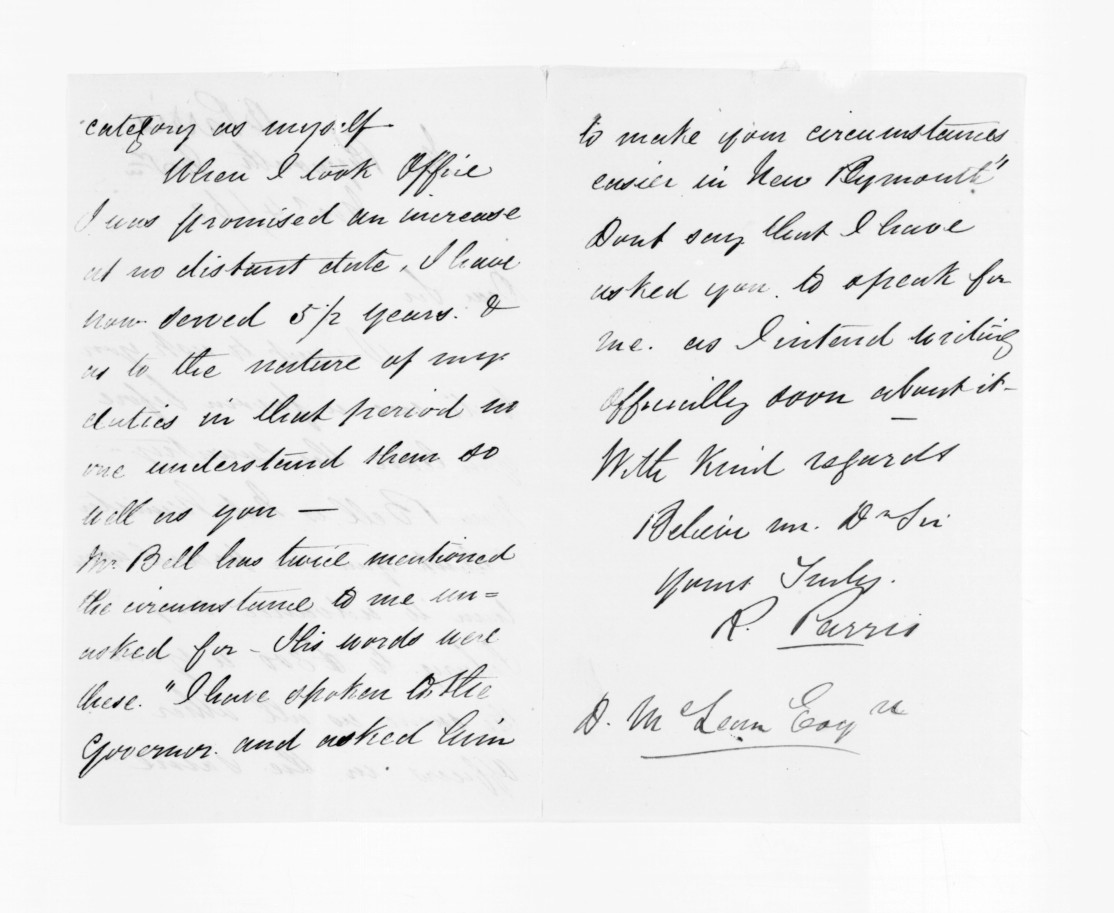 category as myself
When I took Office
I was promised an increase
at no distant date, I have
now served 5 1/2 years. &
as to the nature of my
duties in that period no
one understand them so
well as you —
Mr. Bell has twice mentioned
the circumstance to me un=
asked for - His words were
these. "I have spoken to the
Governor. and asked him
to make your circumstances
easier in New Plymouth"
Dont say that I have
asked you. to speak for
me. as I intend writing
Officially soon about it-
With kind regards
Believe me. Dr Sir
Yours Truly.
R. Parris
D. McLean Esqre